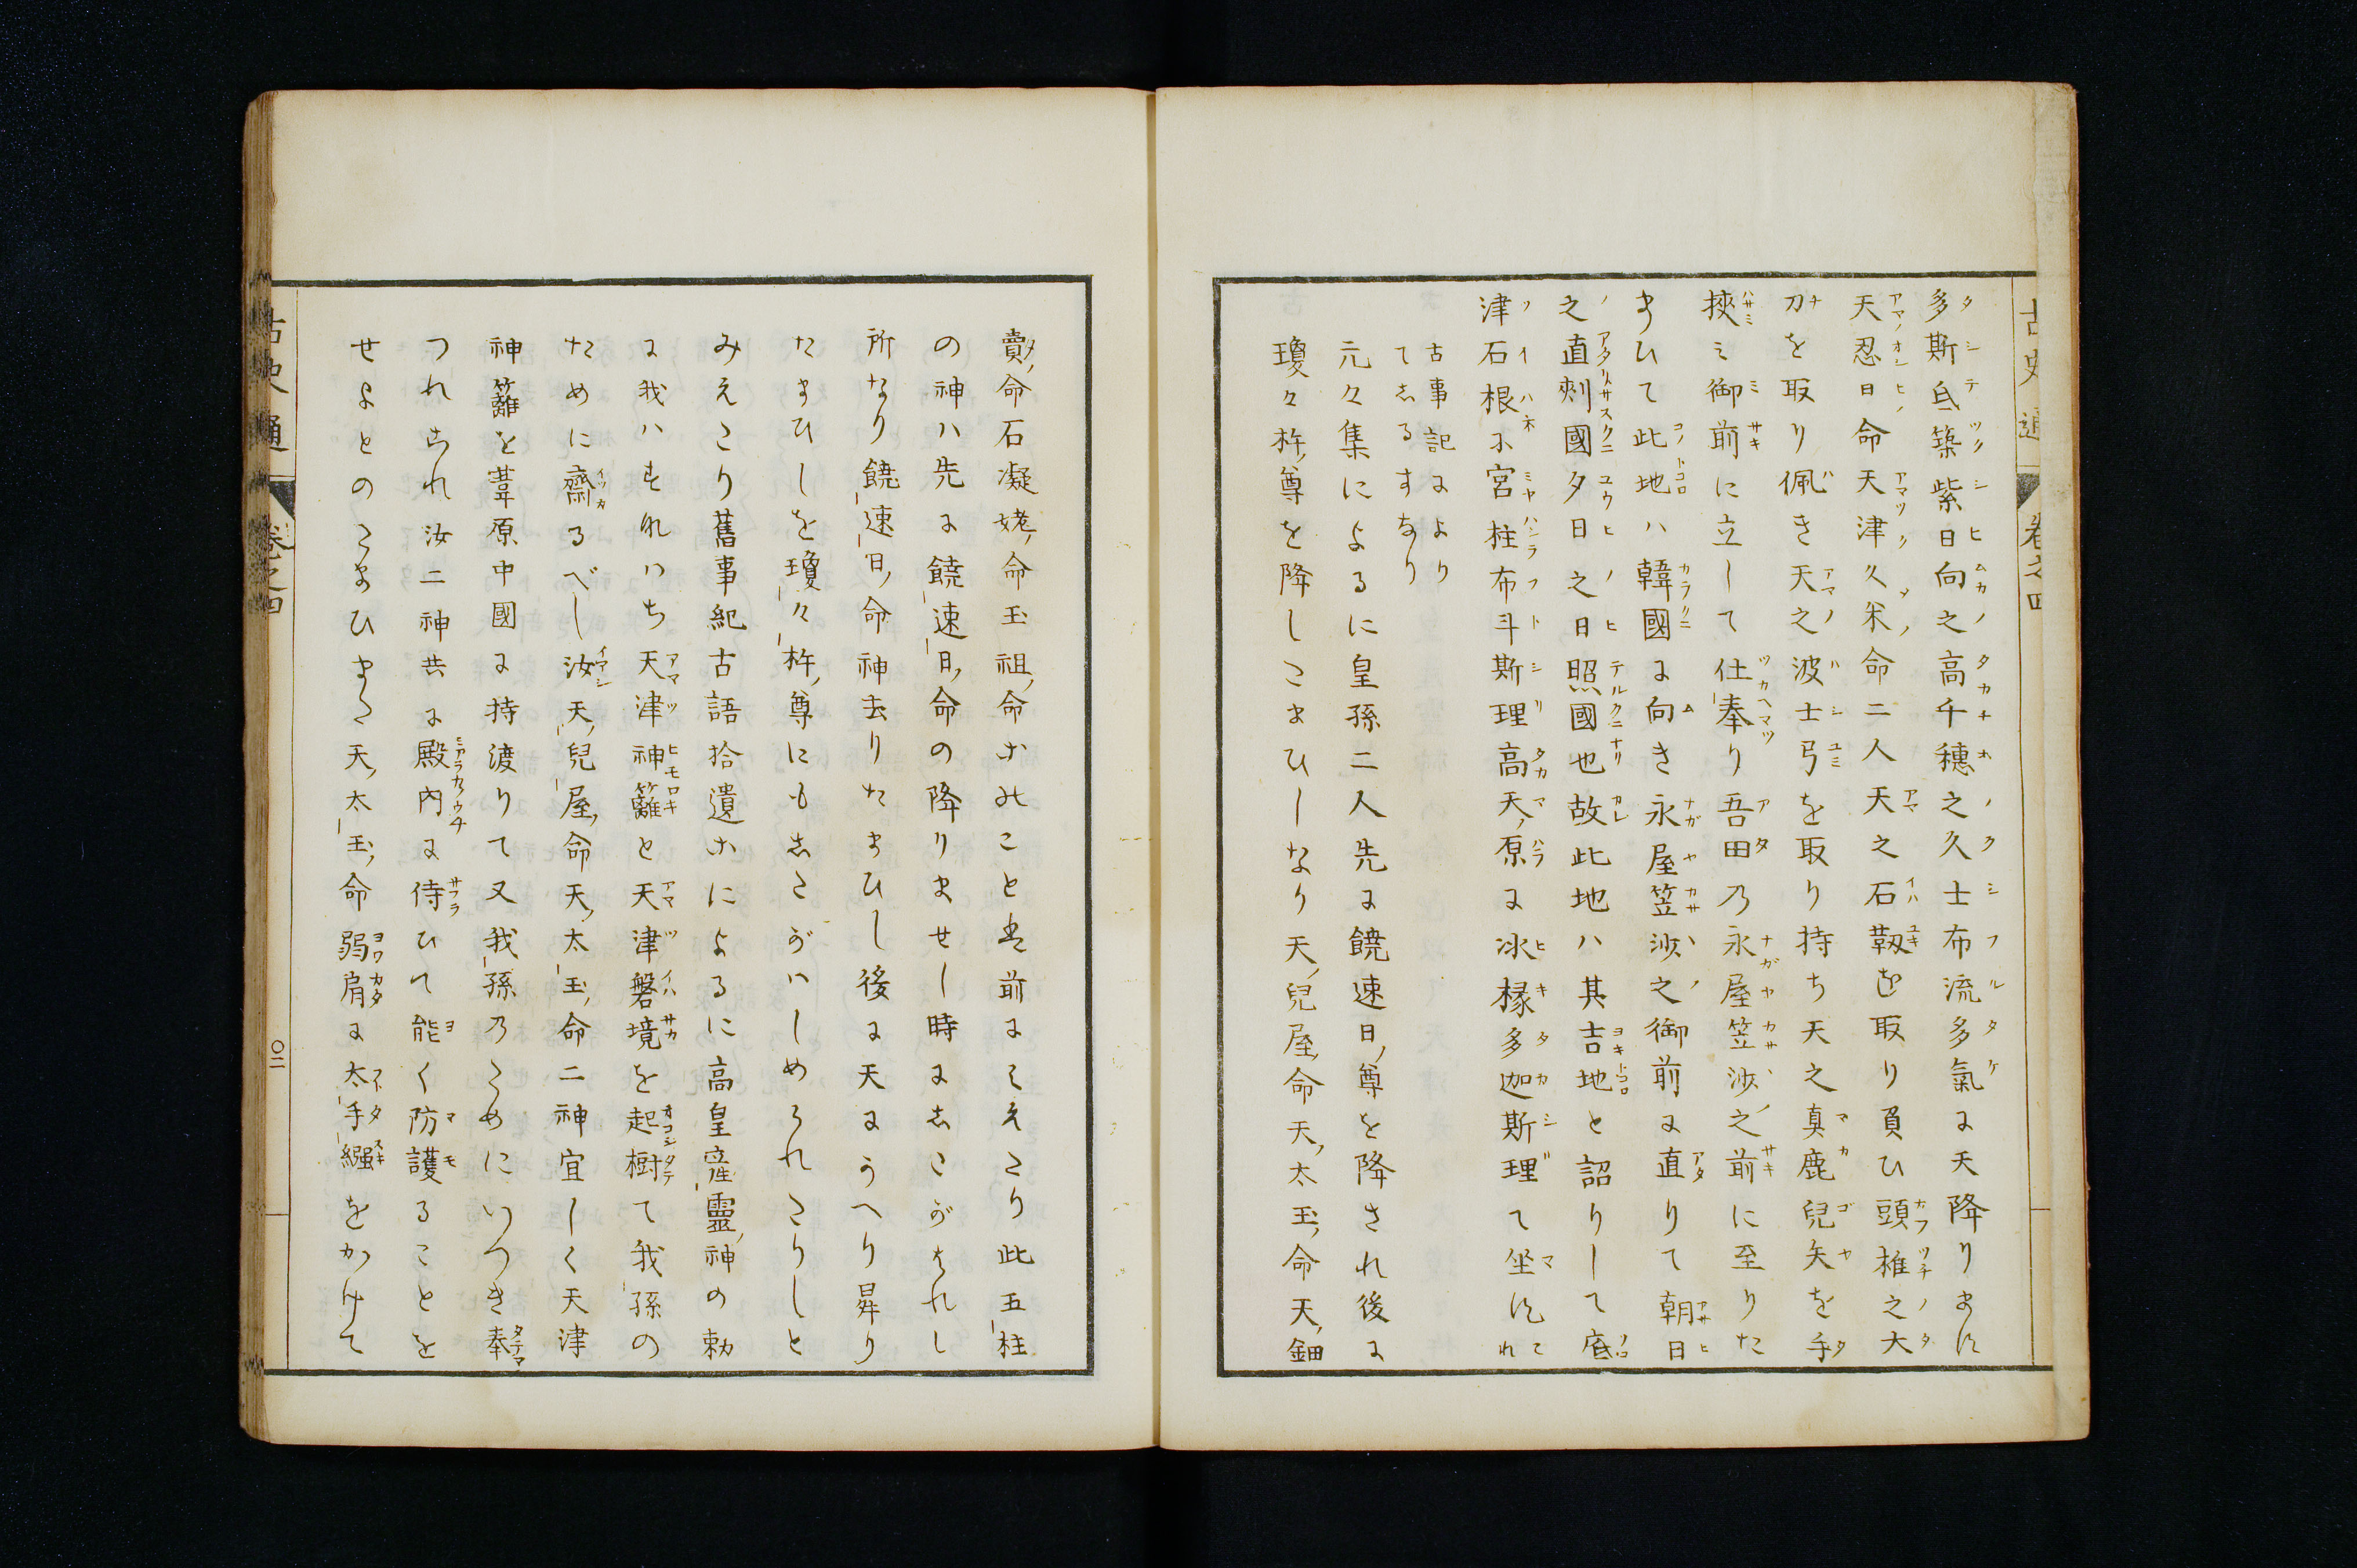 古史通
卷之四
多斯氐築紫日向之高千穗之久士布流多氣に天降りまに
天忍日命天津久米命二人天之石靱を取り負ひ頭椎之大
刀を取り佩き天之波士弓を取り持ち天之真鹿兒矢を手
挾ミ御前に立して仕奉り吾田乃永屋笠沙之前に至りた
まひて此地ハ韓國に向き永屋笠沙之御前に直りて朝日
之直刺國夕日之日照國也故此地ハ其吉地と詔りして底
津石根尓宮柱布斗斯理高天原に冰椽多迦斯理て坐に
古事記によりてしるすなり
元々集によるに皇孫二人先に饒速日尊を降され後に
瓊々杵尊を降したまひしなり天兒屋命天太玉命天鈿
賣命石凝姥命玉祖命ホのこと是前にみえたり此五柱
の神ハ先に饒速日命の降りませし時にしたがはれし
所なり饒速日命神去りたまひし後に天にうへり昇り
たまひしを瓊々杵尊にもしたがハしめられたりしと
みえたり舊事紀古語拾遺ホによるに高皇産靈神の勅
に我ハすれハち天津神籬と天津磐境を起樹て我孫の
ために齋るべし汝天兒屋命天太玉命二神宜しく天津
神籬を葦原中國に持渡りて又我孫乃ためにいつき奉
つれられ汝二神共に殿内に侍ひて能く防護ることを
せよとのたまひまた天太玉命弱肩に太手繦をかけて
古史通
卷之四
〇二